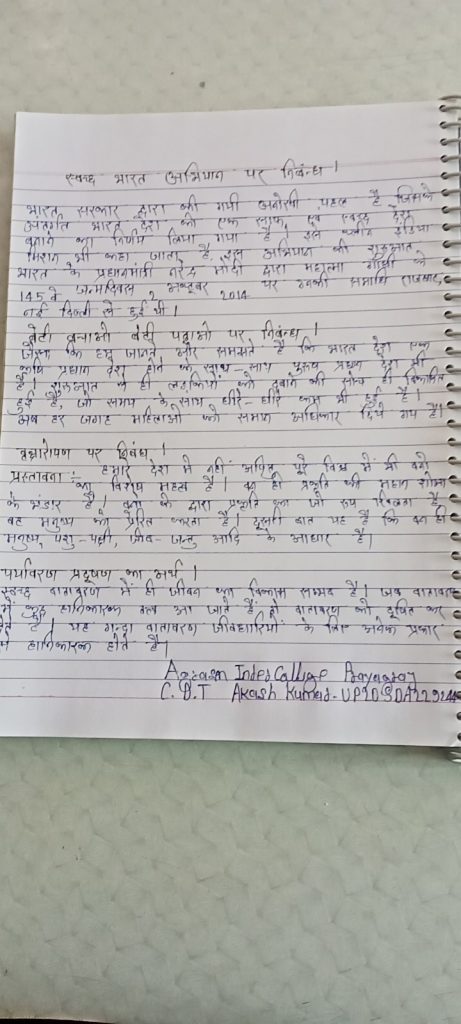 स्वच्छ भारत अभियान पर निबंन्ध।
भारत सरकार द्वारा की गयी अनोखी पहल है जिसके
अंतर्गत भारत देश को एक साफ, एवं स्वच्छ देश
बनाने का निर्णय लिया गया है, इसे क्लीन इंडिया
मिशन भी कहा जाता है, इस अभियान की शुरूआत
भारत के प्रधानमंत्री नरेंद्र मोदी द्वारा महात्मा गाँधी के
145 वें जन्मदिवस 2 अक्टूबर 2014 पर उनकी समाधि राजघाट,
नई दिल्ली से हुई थी।
बेटी बचाओ बेटी पढ़ाओ पर निबंन्ध।
जैसा कि हम जानते और समझते है कि भारत देश एक
कृषि प्रधान देश होने के साथ साथ पुरूष प्रधान देश भी
है। शुरूआत से ही लड़कियों को दबाने की सोच ही विकसित
हुई है, जो समय के साथ, धीरे-धीरे कम भी हुई है।
अब हर जगह महिलाओं को समान अधिकार दिये गए हैं।
वृक्षारोपण पर निबंध।
प्रस्तावना :- हमारे देश में नहीं अपितु पूरे विश्व में भी वनो
का विशेष महत्व है। वन ही प्रकृति की महान शोभा
के भंडार है। वनो के द्वारा प्रकृति का जो रूप खिलता है
वह मनुष्य को प्रेरित करता है। दूसरी बात यह है कि वन ही
मनुष्य, पशु-पक्षी, जीव-जन्तु आदि के आधार है।
पर्यावरण प्रदूषण का अर्थ।
स्वच्छ वातावरण में ही जीवन का विकास सम्भव है। जब वातावरण
में कुछ हानिकारक तत्व आ जाते हैं, तो वातावरण को दूषित कर
देते है। यह गन्दा वातावरण जीवधारियों के लिए अनेक प्रकार
से हानिकारक होते है।
Inter College Prayagraj
C.D.T Akash Kumar-